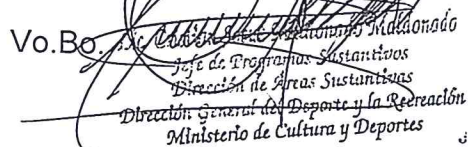 Vo.Bo. Maldonado
Jefe de Programas Sustantivos
Dirección de Áreas Sustantivas
Dirección General del Deporte y la Recreación
Ministerio de Cultura y Deportes